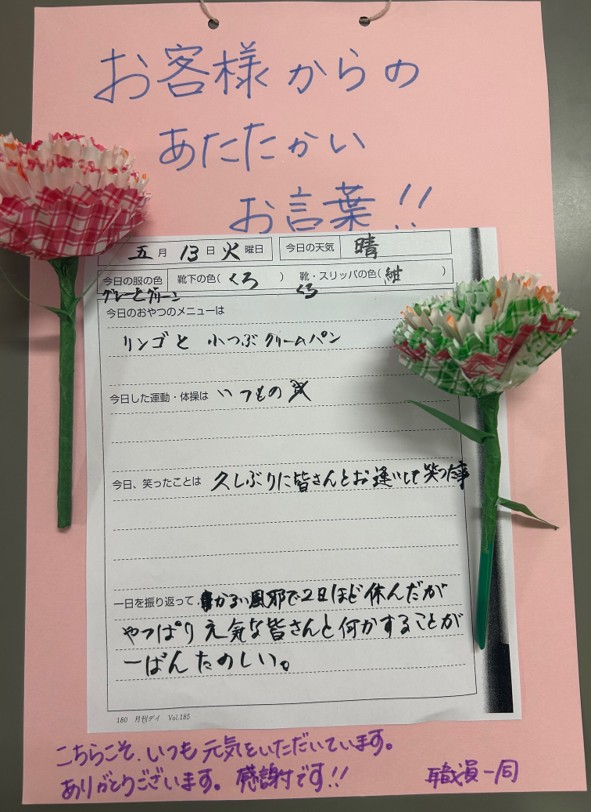 お客様からの
あたたかい
お言葉!!
五月 13日 火曜日 今日の天気 晴
今日の服の色 靴下の色( くろ ) 靴・スリッパの色( 紺 )
グレーとグリーン くろ
今日のおやつのメニューは
リンゴと 小つぶクリームパン
今日した運動・体操は いつもの
今日、笑ったことは 久しぶりに皆さんとお逢いして笑った事
一日を振り返って かるい風邪で2日ほど休んだが
やっぱり元気な皆さんと何かすることが
一ばんたのしい。
180 月刊デイ Vol.185
こちらこそ、いつも元気をいただいています。
ありがとうございます。感謝です!! 職員一同